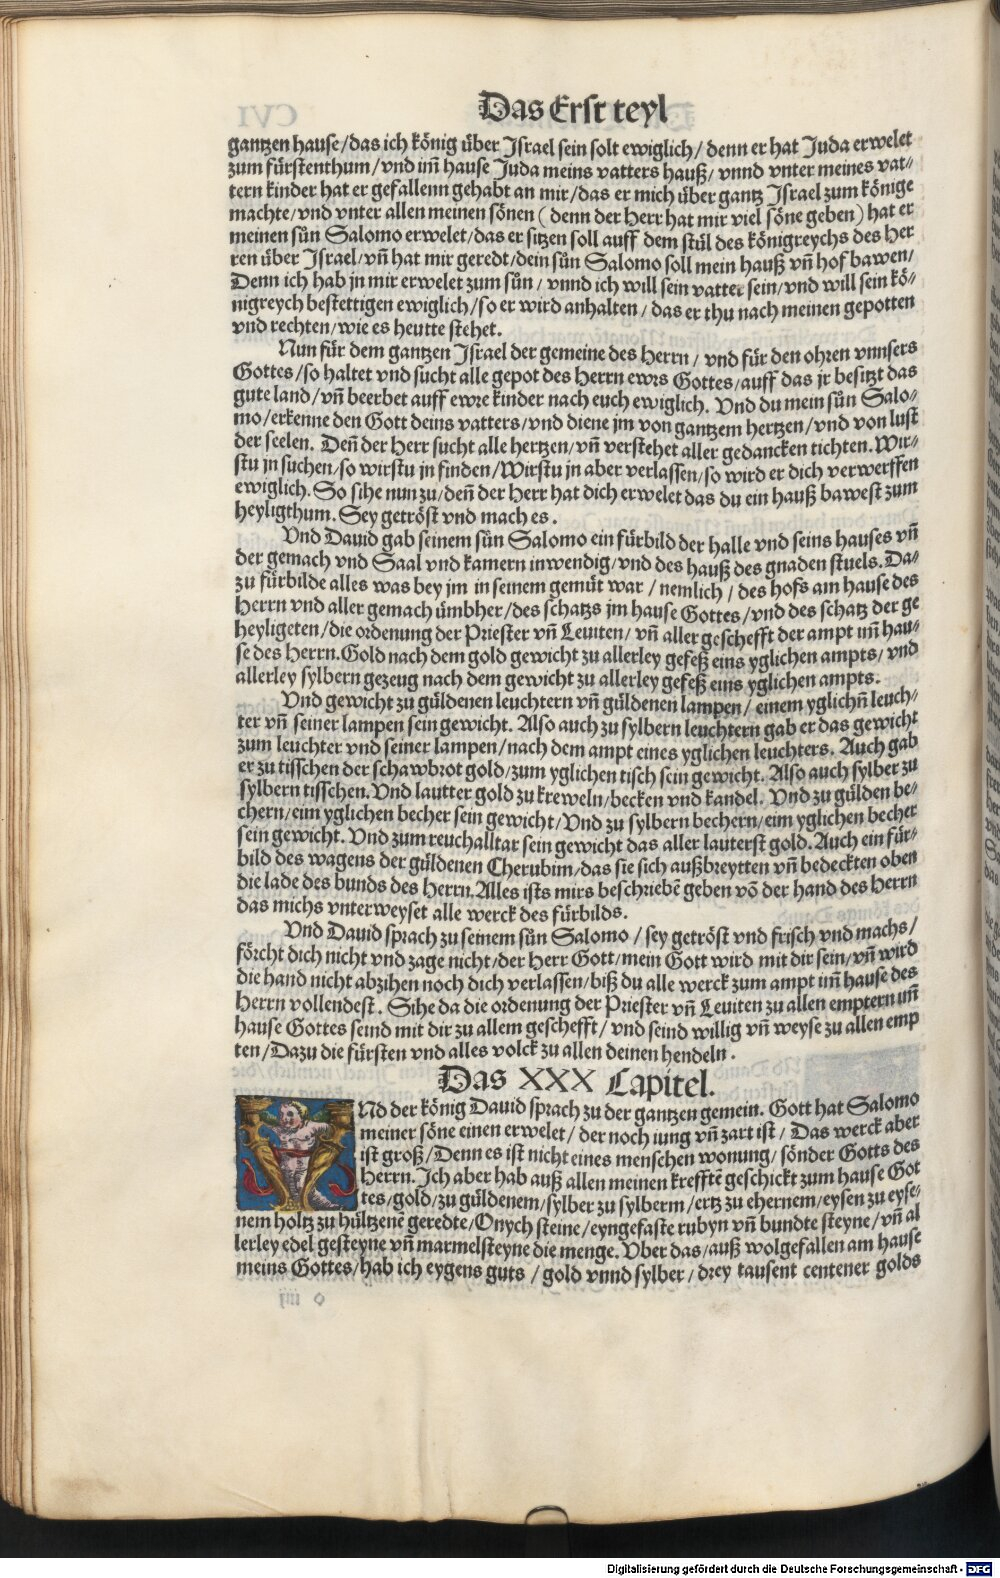 Das Erst teyl
gantzen hause/das ich könig über Israel sein solt ewiglich/ denn er hat Juda erwelet
zum fürstenthum/vnd im̄ hause Juda meins vatters hauß/ vnnd vnter meines vat⸗
tern kinder hat er gefallenn gehabt an mir/das er mich über gantz Israel zum könige
machte/vnd vnter allen meinen sönen (denn der Herr hat mir viel söne geben) hat er
meinen sůn Salomo erwelet/das er sitzen soll auff dem stůl des königreychs des Her
ren über Israel/vn̄ hat mir geredt/dein sůn Salomo soll mein hauß vn̄ hof bawen/
Denn ich hab jn mir erwelet zum sůn/ vnnd ich will sein vatter sein/vnd will sein kö⸗
nigreych bestettigen ewiglich/so er wird anhalten/ das er thu nach meinen gepotten
vnd rechten/wie es heutte stehet.
Nun für dem gantzen Israel der gemeine des Herrn/ vnd für den ohren vnnsers
Gottes/so haltet vnd sucht alle gepot des Herrn ewrs Gottes/auff das jr besitzt das
gute land/vn̄ beerbet auff ewre kinder nach euch ewiglich. Vnd du mein sůn Salo⸗
mo/erkenne den Gott deins vatters/vnd diene jm von gantzem hertzen/vnd von lust
der seelen. Den̄ der Herr sucht alle hertzen/vn̄ verstehet aller gedancken tichten. Wir⸗
stu jn suchen/so wirstu jn finden/Wirstu jn aber verlassen/so wird er dich verwerffen
ewiglich. So sihe nun zu/den̄ der Herr hat dich erwelet das du ein hauß bawest zum
heyligthum. Sey getröst vnd mach es.
Vnd Dauid gab seinem sůn Salomo ein fürbild der halle vnd seins hauses vn̄
der gemach vnd Saal vnd kamern inwendig/vnd des hauß des gnaden stuels. Da⸗
zu fürbilde alles was bey jm in seinem gemüt war/ nemlich/ des hofs am hause des
Herrn vnd aller gemach ümbher/des schatzs jm hause Gottes/vnd des schatz der ge
heyligeten/die ordenung der Priester vn̄ Leuiten/ vn̄ aller geschefft der ampt im̄ hau⸗
se des Herrn. Gold nach dem gold gewicht zu allerley gefeß eins yglichen ampts/ vnd
allerley sylbern gezeug nach dem gewicht zu allerley gefeß eins yglichen ampts.
Vnd gewicht zu güldenen leuchtern vn̄ güldenen lampen/ einem yglichn̄ leuch⸗
ter vn̄ seiner lampen sein gewicht. Also auch zu sylbern leuchtern gab er das gewicht
zum leuchter vnd seiner lampen/nach dem ampt eines yglichen leuchters. Auch gab
er zu tisschen der schawbrot gold/zum yglichen tisch sein gewicht. Also auch sylber zu
sylbern tisschen. Vnd lautter gold zu kreweln/becken vnd kandel. Vnd zu gülden be⸗
chern/eim yglichen becher sein gewicht/Vnd zu sylbern bechern/eim yglichen becher
sein gewicht. Vnd zum reuchalltar sein gewicht das aller lauterst gold. Auch ein für⸗
bild des wagens der güldenen Cherubim/das sie sich außbreytten vn̄ bedeckten oben
die lade des bunds des Herrn. Alles ists mirs beschriebē geben vō der hand des Herrn
das michs vnterweyset alle werck des fürbilds.
Vnd Dauid sprach zu seinem sůn Salomo/ sey getröst vnd frisch vnd machs/
förcht dich nicht vnd zage nicht/der Herr Gott/mein Gott wird mit dir sein/vn̄ wird
die hand nicht abzihen noch dich verlassen/biß du alle werck zum ampt im̄ hause des
Herrn vollendest. Sihe da die ordenung der Priester vn̄ Leuiten zu allen emptern im̄
hause Gottes seind mit dir zu allem geschefft/ vnd seind willig vn̄ weyse zu allen emp
ten/Dazu die fürsten vnd alles volck zu allen deinen hendeln.
Das XXX Capitel.
VNd der könig Dauid sprach zu der gantzen gemein. Gott hat Salomo
meiner söne einen erwelet/ der noch iung vn̄ zart ist/ Das werck aber
ist groß/Denn es ist nicht eines menschen wonung/sönder Gotts des
Herrn. Ich aber hab auß allen meinen krefftē geschickt zum hause Got
tes/gold/zu güldenem/sylber zu sylberm/ertz zu ehernem/eysen zu eyse⸗
nem holtz zu hültzenē geredte/Onych steine/eyngefaste rubyn vn̄ bundte steyne/vn̄ al
lerley edel gesteyne vn̄ marmelsteyne die menge. Vber das/auß wolgefallen am hause
meins Gottes/hab ich eygens guts/ gold vnnd sylber/ drey tausent centener golds
Digitalisierung gefördert durch die Deutsche Forschungsgemeinschaft - DFG